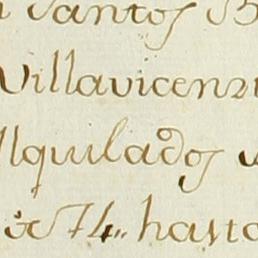 Santos
Villavicenzi
Alquilados
de 74,, hasta